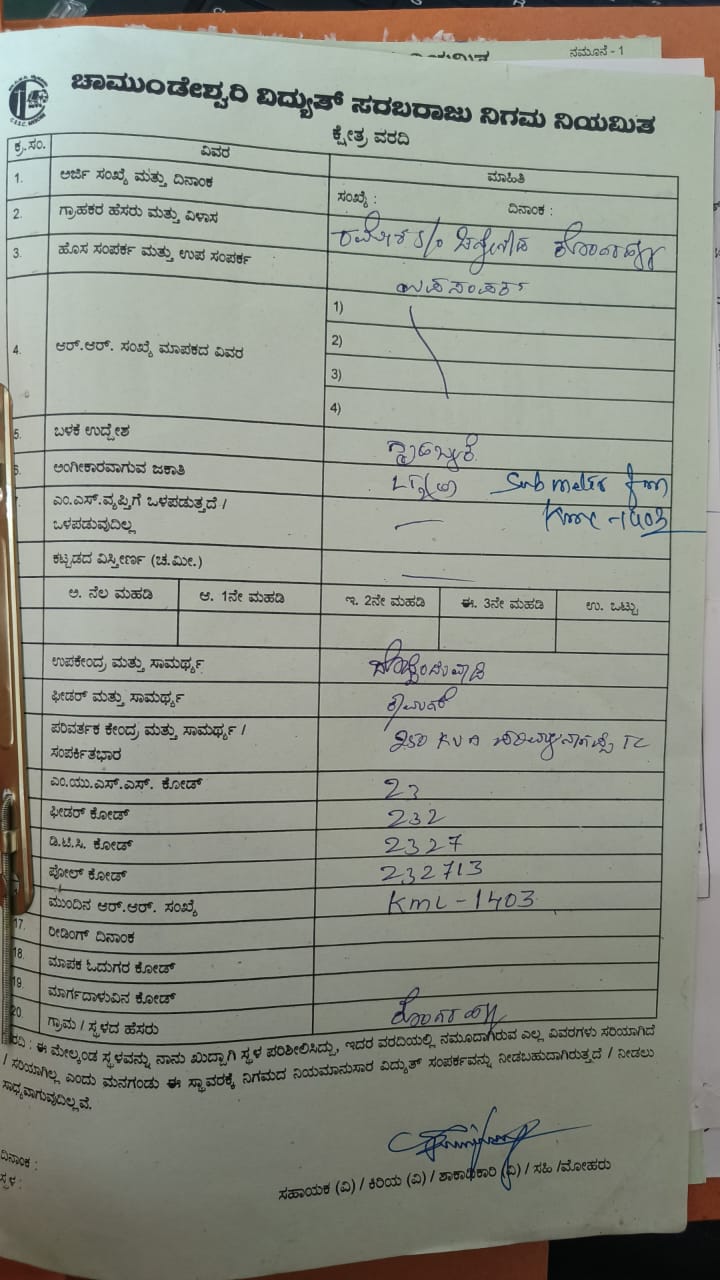 ನಮೂನೆ - 1
ಚಾಮುಂಡೇಶ್ವರಿ ವಿದ್ಯುತ್ ಸರಬರಾಜು ನಿಗಮ ನಿಯಮಿತ
ಕ್ಷೇತ್ರ ವರದಿ
ಕ್ರ.ಸಂ. ವಿವರ ಮಾಹಿತಿ
1. ಅರ್ಜಿ ಸಂಖ್ಯೆ ಮತ್ತು ದಿನಾಂಕ ಸಂಖ್ಯೆ : ದಿನಾಂಕ :
2. ಗ್ರಾಹಕರ ಹೆಸರು ಮತ್ತು ವಿಳಾಸ
3. ಹೊಸ ಸಂಪರ್ಕ ಮತ್ತು ಉಪ ಸಂಪರ್ಕ ಉಪಸಂಪರ್ಕ
4. ಆರ್.ಆರ್. ಸಂಖ್ಯೆ ಮಾಪಕದ ವಿವರ
1)
2)
3)
4)
5. ಬಳಕೆ ಉದ್ದೇಶ
6. ಅಂಗೀಕಾರವಾಗುವ ಜಕಾತಿ Sub meter from
ಎಂ.ಎಸ್.ವ್ಯಪ್ತಿಗೆ ಒಳಪಡುತ್ತದೆ / KML-1403
ಒಳಪಡುವುದಿಲ್ಲ
ಕಟ್ಟಡದ ವಿಸ್ತೀರ್ಣ (ಚ.ಮೀ.)
ಅ. ನೆಲ ಮಹಡಿ ಆ. 1ನೇ ಮಹಡಿ ಇ. 2ನೇ ಮಹಡಿ ಈ. 3ನೇ ಮಹಡಿ ಉ. ಒಟ್ಟು
ಉಪಕೇಂದ್ರ ಮತ್ತು ಸಾಮರ್ಥ್ಯ
ಫೀಡರ್ ಮತ್ತು ಸಾಮರ್ಥ್ಯ
ಪರಿವರ್ತಕ ಕೇಂದ್ರ ಮತ್ತು ಸಾಮರ್ಥ್ಯ / 250 KVA TC
ಸಂಪರ್ಕಿತಭಾರ
ಎಂ.ಯು.ಎಸ್.ಎಸ್. ಕೋಡ್ 23
ಫೀಡರ್ ಕೋಡ್ 232
ಡಿ.ಟಿ.ಸಿ. ಕೋಡ್ 2327
ಪೋಲ್ ಕೋಡ್ 232713
ಮುಂದಿನ ಆರ್.ಆರ್. ಸಂಖ್ಯೆ KML-1403
17. ರೀಡಿಂಗ್ ದಿನಾಂಕ
18. ಮಾಪಕ ಓದುಗರ ಕೋಡ್
19. ಮಾರ್ಗದಾಳುವಿನ ಕೋಡ್
20. ಗ್ರಾಮ / ಸ್ಥಳದ ಹೆಸರು
ಈ ಮೇಲ್ಕಂಡ ಸ್ಥಳವನ್ನು ನಾನು ಖುದ್ದಾಗಿ ಸ್ಥಳ ಪರಿಶೀಲಿಸಿದ್ದು, ಇದರ ವರದಿಯಲ್ಲಿ ನಮೂದಾಗಿರುವ ಎಲ್ಲ ವಿವರಗಳು ಸರಿಯಾಗಿದೆ
/ ಸರಿಯಾಗಿಲ್ಲ ಎಂದು ಮನಗಂಡು ಈ ಸ್ಥಾವರಕ್ಕೆ ನಿಗಮದ ನಿಯಮಾನುಸಾರ ವಿದ್ಯುತ್ ಸಂಪರ್ಕವನ್ನು ನೀಡಬಹುದಾಗಿರುತ್ತದೆ / ನೀಡಲು
ಸಾಧ್ಯವಾಗುವುದಿಲ್ಲವೆ.
ದಿನಾಂಕ :
ಸ್ಥಳ :
ಸಹಾಯಕ (ವಿ) / ಕಿರಿಯ (ವಿ) / ಶಾಕಾಧಿಕಾರಿ (ವಿ) / ಸಹಿ /ಮೋಹರು